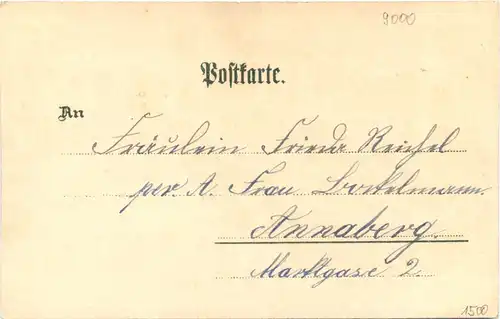 9000
Postkarte.
An
Fräulein Frieda Reichel
per. A. Frau Bockelmann
Annaberg.
Marktgasse 2.
1500